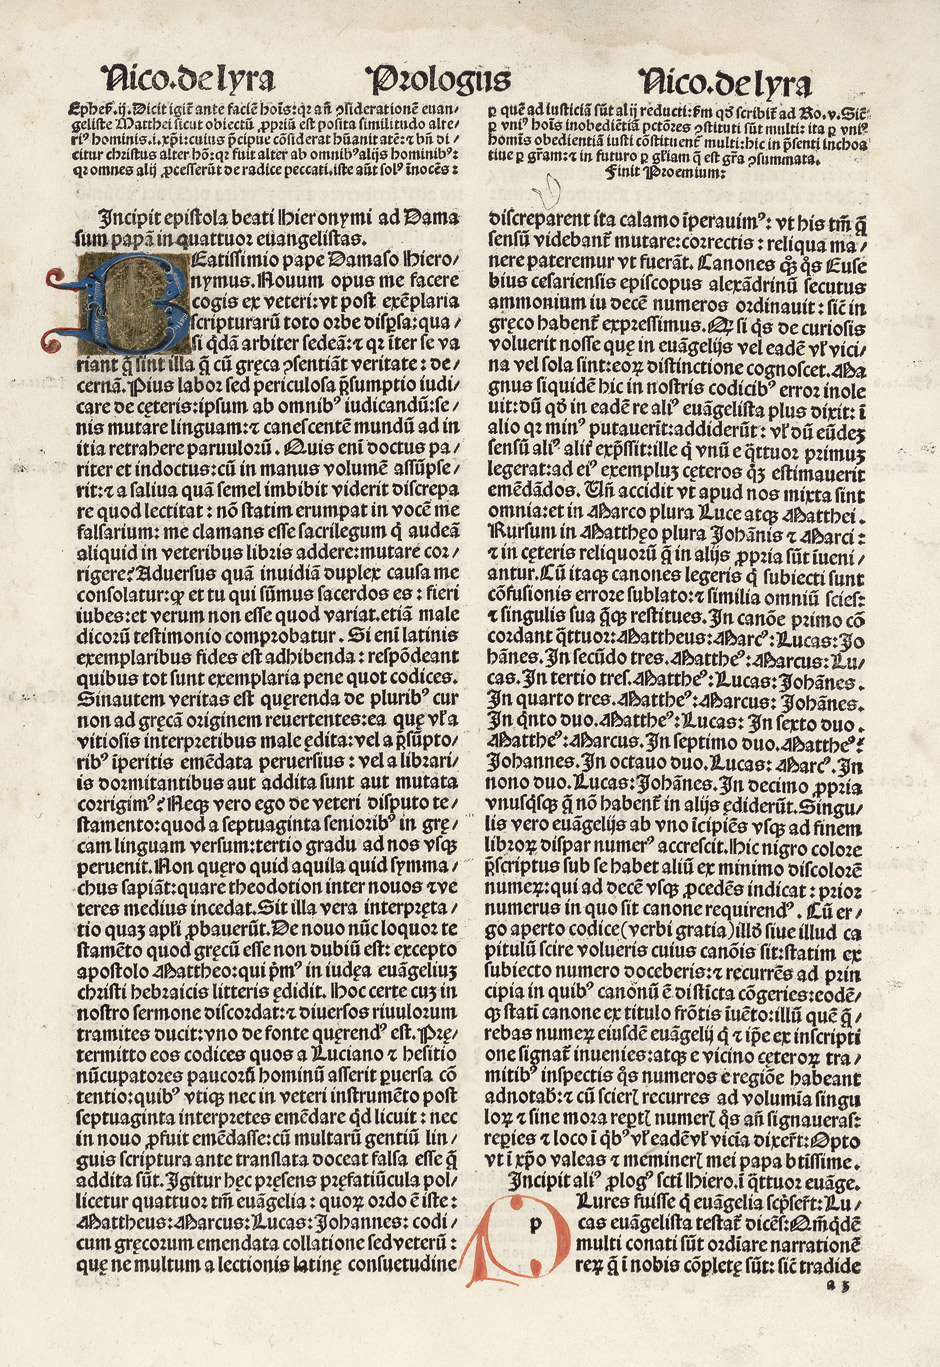 Nico.de lyra
Prologus
Nico.de lyra
Ephes.ij. Dicit igit̃ ante faciē hoīs: qꝛ añ ↄsiderationē euan⸗
geliste Matthei sicut obiectū ꝓpriū est posita similitudo alte⸗
riꝰ hominis.i.xp̄i: cuius p̄cipue cōsiderat hūanitatē: ⁊ bñ di⸗
citur christus alter hō: qꝛ fuit alter ab omnibꝰ alijs hominibꝰ:
qꝛ omnes alij ꝓcesserūt de radice peccati. iste aūt solꝰ inocēs:
ꝑ quē ad iusticiā sūt alij reducti: fm̄ qđ scribit̃ ad Ro.v. Sic̄
ꝑ vniꝰ hoīs inobediētiā pctōres ↄstituti sūt multi: ita ꝑ vniꝰ
homīs obedientiā iusti cōstituent̃ multi: hic in p̄senti inchoa
tiue ꝑ gr̄am: ⁊ in futuro ꝑ gl̄iam q̄ est gr̄a ↄsummata.
Finit Proemium:
Incipit epistola beati Hieronymi ad Dama
sum papā in quattuor euangelistas.
BEatissimo pape Damaso Hiero⸗
nymus. Nouum opus me facere
cogis ex veteri: vt post exēplaria
scripturarū toto orbe disp̄sa: qua⸗
si q̇dā arbiter sedeā: ⁊ qꝛ īter se va
riant q̄ sint illa q̄ cū gręca ↄsentiāt veritate: de⸗
cernā. Pius labor sed periculosa p̄sumptio iudi⸗
care de cęteris: ipsum ab omnibꝰ iudicandū: se⸗
nis mutare linguam: ⁊ canescentem mundū ad in
itia retrahere paruulorū. Quis enī doctus pa⸗
riter et indoctus: cū in manus volumē assūpse⸗
rit: ⁊ a saliua quā semel imbibit viderit discrepa
re quod lectitat: nō statim erumpat in vocē me
falsarium: me clamans esse sacrilegum q̇ audeā
aliquid in veteribus libris addere: mutare cor⸗
rigere? Aduersus quā inuidiā duplex causa me
consolatur: ꝙ et tu qui sūmus sacerdos es: fieri
iubes: et verum non esse quod variat. etiā male
dicorū testimonio comprobatur. Si enī latinis
exemplaribus fides est adhibenda: respōdeant
quibus tot sunt exemplaria pene quot codices.
Sin autem veritas est quęrenda de pluribꝰ cur
non ad gręcā originem reuertentes: ea quę vl̄ a
vitiosis interpretibus male ędita: vel a p̄sūpto⸗
ribꝰ īperitis emēdata peruersius: vel a librari⸗
is dormitantibus aut addita sunt aut mutata
corrigimꝰ? Neqꝫ vero ego de veteri disputo te⸗
stamento: quod a septuaginta senioribꝰ in grę⸗
cam linguam versum: tertio gradu ad nos vsqꝫ
peruenit. Non quero quid aquila quid symma⸗
chus sapiāt: quare theodotion inter nouos ⁊ ve
teres medius incedat. Sit illa vera interpreta⸗
tio quaꝫ apl̄i ꝓbauerūt. De nouo nūc loquor te
stamēto quod gręcū esse non dubiū est: excepto
apostolo Mattheo: qui p̄mꝰ in iudęa euāgeliuꝫ
christi hebraicis litteris ędidit. Hoc certe cuꝫ in
nostro sermone discordat: ⁊ diuersos riuulorum
tramites ducit: vno de fonte quęrendꝰ est. Prę⸗
termitto eos codices quos a Luciano ⁊ hesitio
nūcupatores paucorū hominū asserit ꝑuersa cō
tentio: quibꝰ vtiqꝫ nec in veteri instrumēto post
septuaginta interpretes emēdare q̇d licuit: nec
in nouo ꝓfuit emēdasse: cū multarū gentiū lin⸗
guis scriptura ante translata doceat falsa esse q̄
addita sūt. Igitur hęc pręsens pręfatiūcula pol⸗
licetur quattuor tm̄ euāgelia: quoꝝ ordo ē iste:
Mattheus: Marcus: Lucas: Johannes: codi⸗
cum gręcorum emendata collatione sed veterū:
quę ne multum a lectionis latinę consuetudine
discreparent ita calamo īperauimꝰ: vt his tm̄ q̄
sensū videbant̃ mutare: correctis: reliqua ma⸗
nere pateremur vt fuerāt. Canones qꝫ q̇s Euse
bius cesariensis episcopus alexādrinū secutus
ammonium iu decē numeros ordinauit: sic̄ in
gręco habent̃ expressimus. Qꝛ si q̇s de curiosis
voluerit nosse quę in euāgelijs vel eadē vl̄ vici⸗
na vel sola sint: eoꝝ distinctione cognoscet. Ma
gnus siquidē hic in nostris codicibꝰ error inole
uit: dū qđ in eadē re aliꝰ euāgelista plus dixit: ī
alio qꝛ minꝰ putauerūt: addiderūt: vl̄ dū eūdeꝫ
sensū aliꝰ alit̃ exp̄ssit: ille q̇ vnū e q̄ttuor primuꝫ
legerat: ad eiꝰ exempluꝫ cęteros qꝫ estimauerit
emēdādos. Uñ accidit vt apud nos mixta sint
omnia: et in Marco plura Luce atqꝫ Matthei.
Rursum in Matthęo plura Johānis ⁊ Marci:
⁊ in cęteris reliquorū q̄ in alijs ꝓpria sūt īueni⸗
antur. Cū itaqꝫ canones legeris q̇ subiecti sunt
cōfusionis errore sublato: ⁊ similia omniū scies:
⁊ singulis sua q̄qꝫ restitues. In canōe primo cō
cordant q̄ttuor: Mattheus: Marcꝰ: Lucas: Jo
hānes. In secūdo tres. Mattheꝰ: Marcus: Lu⸗
cas. In tertio tres. Mattheꝰ: Lucas: Johānes.
In quarto tres. Mattheꝰ: Marcus: Johānes.
In q̇nto duo. Mattheꝰ: Lucas: In sexto duo.
Mattheꝰ: Marcus. In septimo duo. Mattheꝰ:
Johannes. In octauo duo. Lucas: Marcꝰ. In
nono duo. Lucas: Johānes. In decimo ꝓpria
vnusq̇sqꝫ q̄ nō habent̃ in alijs ędiderūt. Singu⸗
lis vero euāgelijs ab vno īcipiēs vsqꝫ ad finem
libroꝝ dispar numerꝰ accrescit. Hic nigro colore
p̄scriptus sub se habet aliū ex minimo discolorē
numeꝝ: qui ad decē vsqꝫ ꝓcedēs indicat: prior
numerus in quo sit canone requirendꝰ. Cū er⸗
go aperto codice (verbi gratia) illđ siue illud ca
pitulū scire volueris cuius canōis sit: statim ex
subiecto numero doceberis: ⁊ recurrēs ad prin
cipia in quibꝰ canōnū ē distīcta cōgeries: eodē⸗
qꝫ stati canone ex titulo frōtis īuēto: illū quē q̄⸗
rebas numeꝝ eiusdē euāgelij q̇ ⁊ ip̄e ex inscripti
one signat̃ inuenies: atqꝫ e vicino cęteroꝝ tra⸗
mitibꝰ inspectis q̇s numeros e regiōe habeant
adnotab̄: ⁊ cū scieris recurres ad volumīa singu
loꝝ ⁊ sine mora rept̄is numeris q̇s añ signaueras:
reꝑies ⁊ loco ī q̇bꝰ vl̄ eadē vl̄ vicīa dixer̄t: Opto
vt ī xp̄o valeas ⁊ memineris mei papa btīssime.
Incipit aliꝰ ꝓlogꝰ scti Hiero. ī q̄ttuor euāge.
p
Lures fuisse q̇ euangelia scp̄ser̄t: Lu⸗
cas euāgelista testat̃ dicēs: Qm̄ q̇dē
multi conati sūt ordīare narrationē
reꝝ q̄ ī nobis cōpletę sūt: sic̄ tradide
a 3